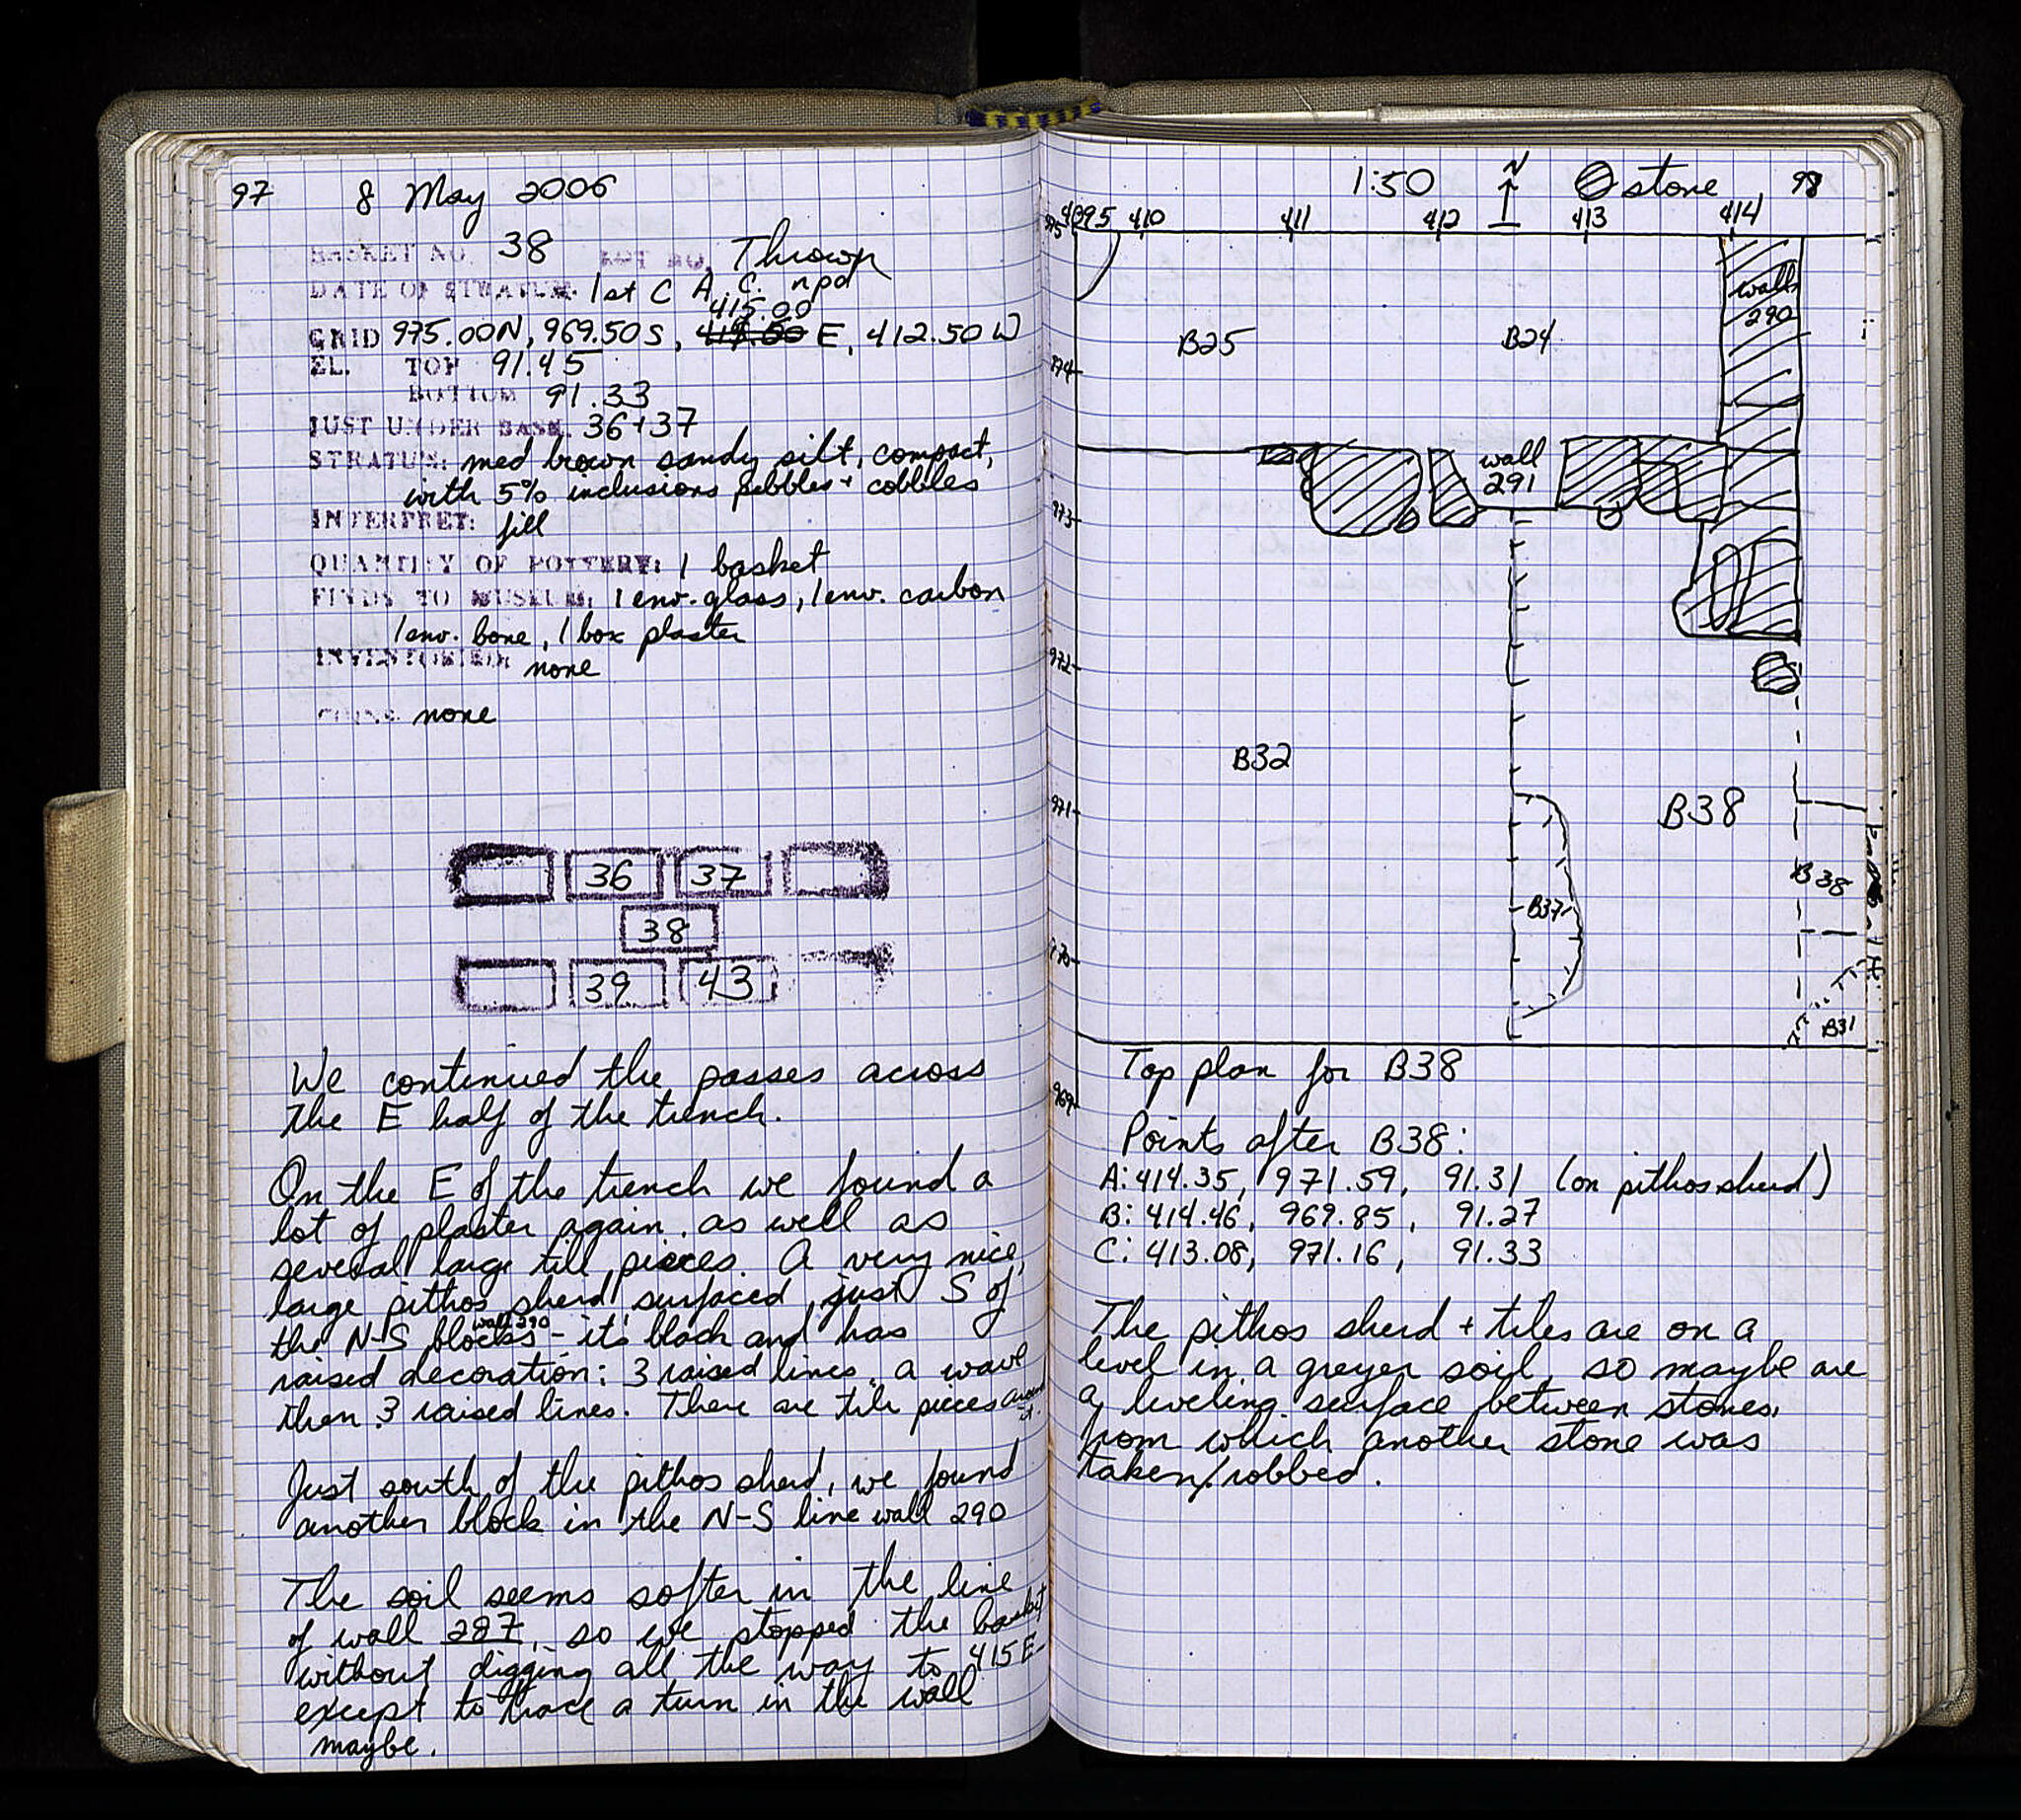 97 8 May 2006
BASKET NO. 38 LOT NO. Thrown
DATE OF STRATUM: 1st C A.C. npd
415.00
GRID 975.00N, 969.50S, E, 412.50 W
EL. TOP 91.45
BOTTOM 91.33
JUST UNDER BASK. 36+37
STRATUM: med brown sandy silt, compact,
with 5% inclusions pebbles + cobbles
INTERPRET: fill
QUANTITY OF POTTERY: 1 basket
FINDS TO MUSEUM: 1 env. glass, 1 env. carbon
1 env. bone, 1 box plaster
INVENTORIED: none
COINS: none
36 37
38
39 43
We continued the passes across
the E half of the trench.
On the E of the trench we found a
lot of plaster again, as well as
several large till pieces. A very nice,
large pithos sherd surfaced just S of
wall 290
the N-S blocks - it's black and has
raised decoration: 3 raised lines, a wave
then 3 raised lines. There are tile pieces around
it.
Just south of the pithos sherd, we found
another block in the N-S line wall 290
The soil seems softer in the line
of wall 287, so we stopped the basket
without digging all the way to 415E-
except to trace a turn in the wall
maybe.
1:50 N stone 98
409.5 410 411 412 413 414
975
wall
290
B25 B24
974
wall
291
973
972
B32
971
B38
B38
B37
970
B31
Top plan for B38
969
Points after B38:
A: 414.35, 971.59, 91.31 (on pithos sherd)
B: 414.46, 969.85, 91.27
C: 413.08, 971.16, 91.33
The pithos sherd + tiles are on a
level in a greyer soil, so maybe are
a leveling surface between stones,
from which another stone was
taken/robbed.